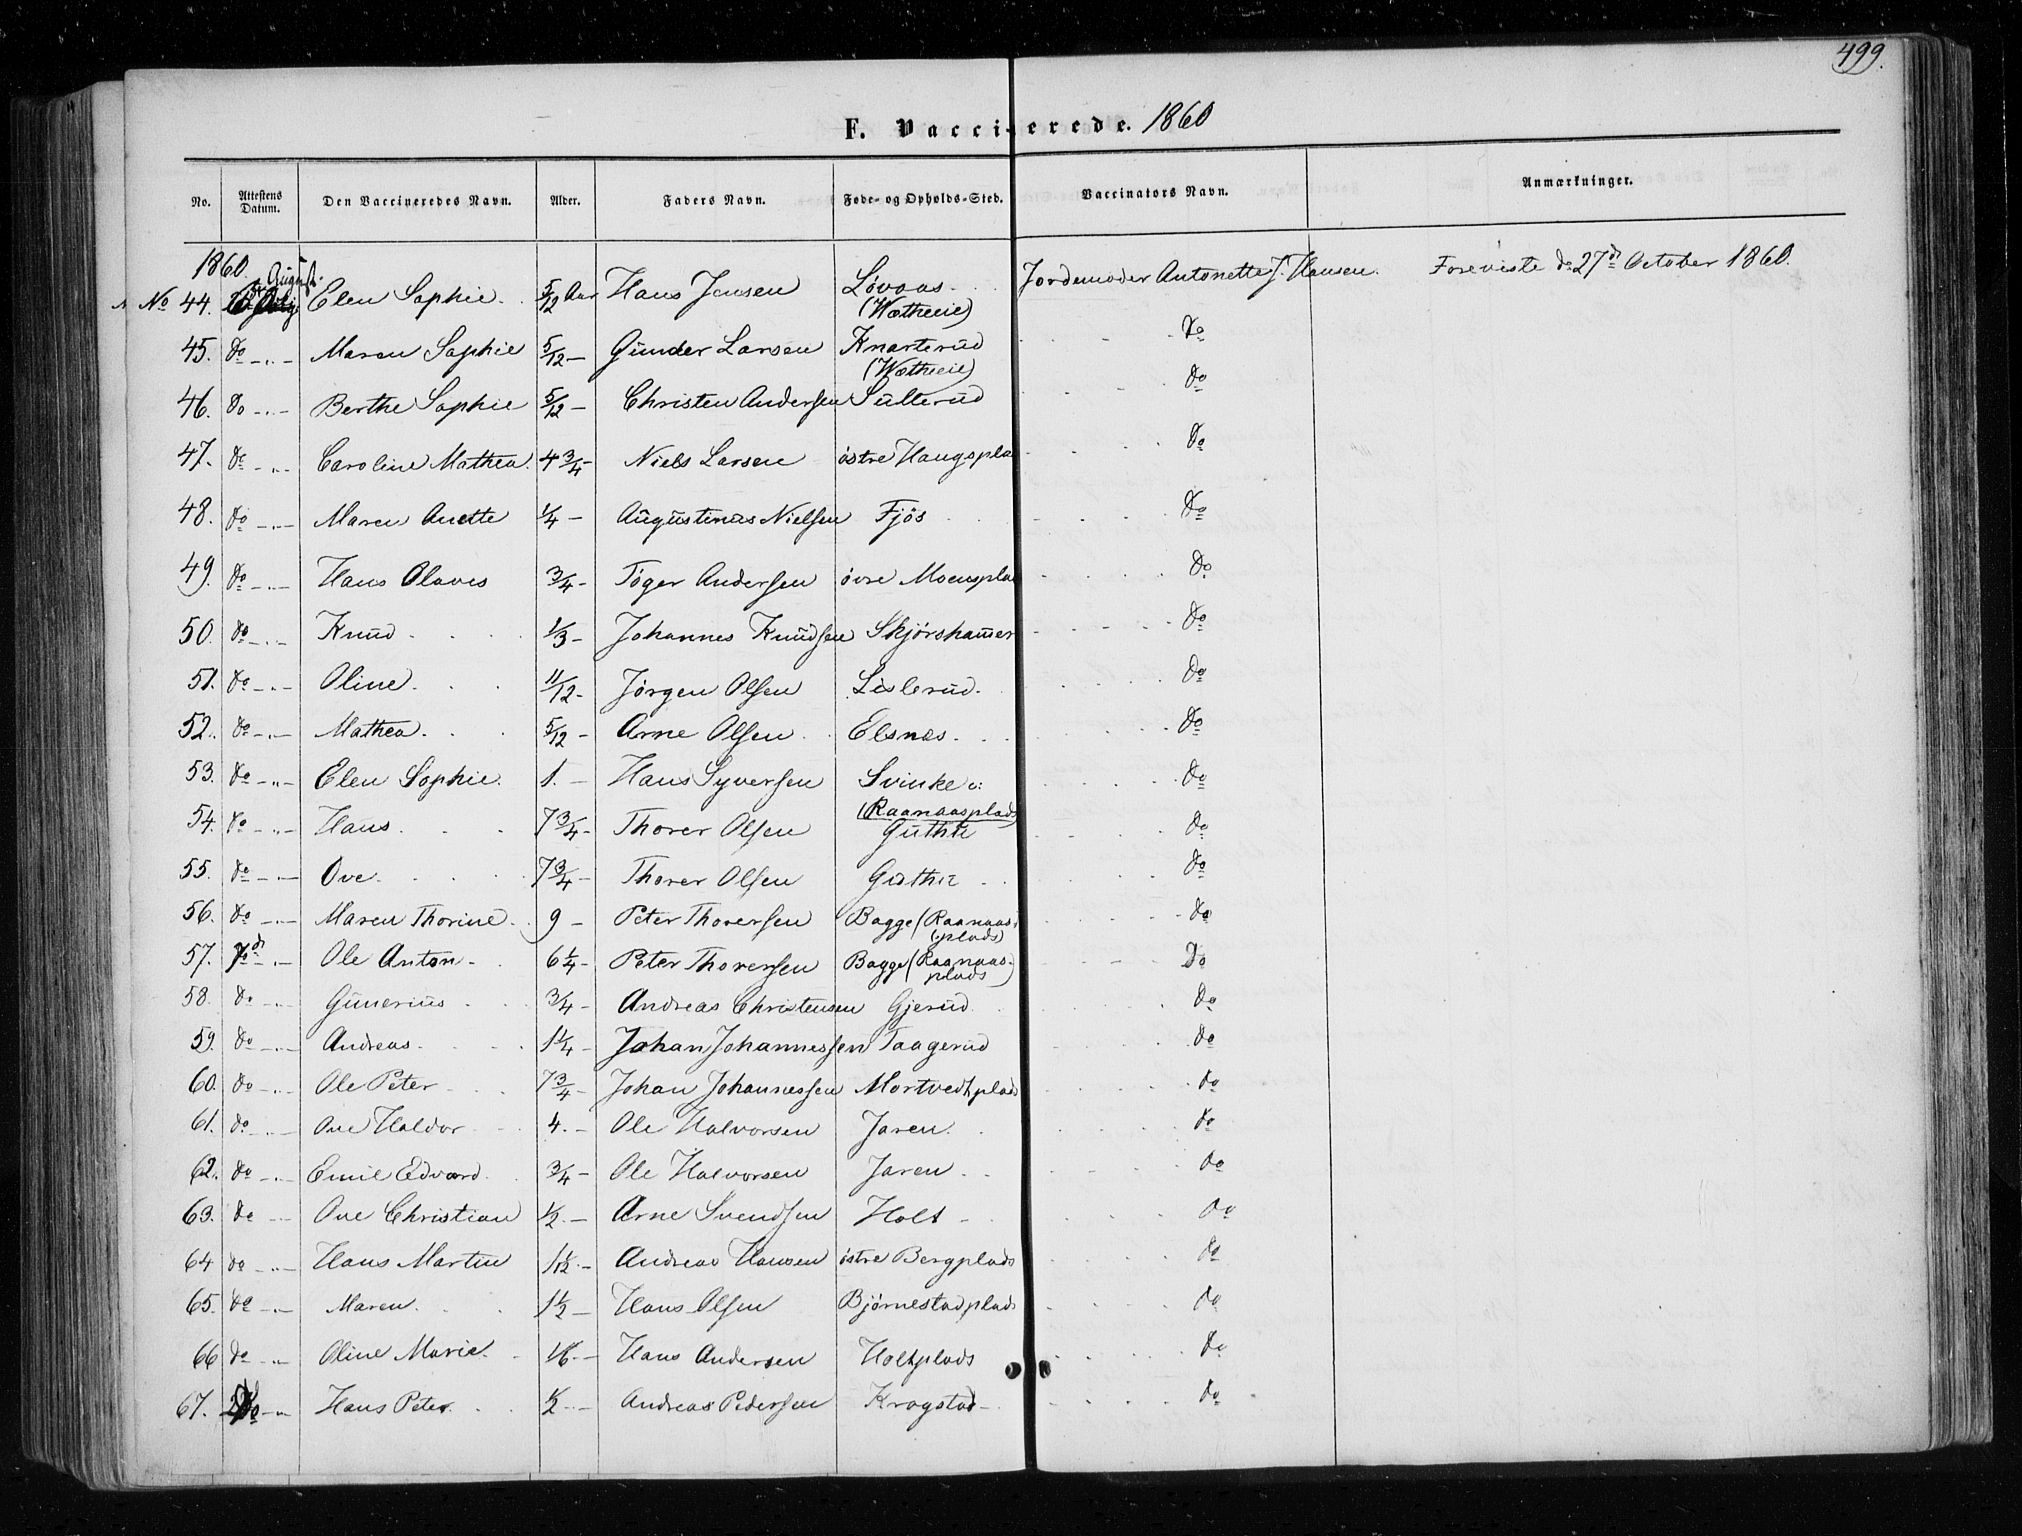 499.
F. Vaccinerede. 1860
No. Attestens Datum. Den Vaccineredes Navn. Alder. Faders Navn. Føde- og Opholds-Sted. Vaccinators Navn. Anmærkninger.
1860.
August
No 44. Elen Sophie. 5/12 Aar Hans Jensen Løvaas Jordemoder Antonette J. Hansen. Foreviste d 27de October 1860.
(Wætheeie)
45. do Maren Sophie 5/12 – Gunder Larsen Knarterud do
(Wætheeie)
46. do Berthe Sophie 5/12 – Christen Andersen Sulterud do
47. do Caroline Mathea. 4 3/4 – Niels Larsen østre Haugspla do
48. do Maren Anette 1/4 – Augustinus Nielsen Fjøs do
49. do Hans Olaves 3/4 – Tøger Andersen øvre Moensplad do
50. do Knud 1/3 – Johannes Knudsen Skjørshammer do
51. do Oline. 11/12 – Jørgen Olsen Lislerud. do
52. do Mathea. 5/12 – Arne Olsen Elsnæs. do
53. do Elen Sophie. 1. – Hans Syversen Svinke do
(Raanaasplads)
54. do Hans. 7 3/4 – Thorer Olsen Guthu do
55. do Ove. 7 3/4 – Thorer Olsen Guthu do
56. do Maren Thorine. 9 – Peter Thoversen Bagge (Raanaas- do
plads)
57. do Ole Anton. 6 1/4 – Peter Thoversen Bagge (Raanaas- do
plads)
58. do Gunerius 3/4 – Andreas Christensen Gjerud do
59. do Andreas. 1 1/4 – Johan Johannessen Taagerud do
60. do Ole Peter 7 3/4 – Johan Johannessen Mortvedtplads do
61. do Ove Haldor 4. – Ole Halvorsen Jaren. do
62. do Emil Edvard. 3/4 – Ole Halvorsen Jaren do
63. do Ove Christian 1/2. – Arne Svendsen Holt do
64 do Hans Martin 1 1/12. – Andreas Hansen østre Bergplads do
65. do Maren. 1 1/2 – Hans Olsen Bjørnestadplads do
66 do Oline Marie. 16. – Hans Andersen Holtplads do
67. do Hans Peter. 1/2 – Andreas Pedersen Kragstad do